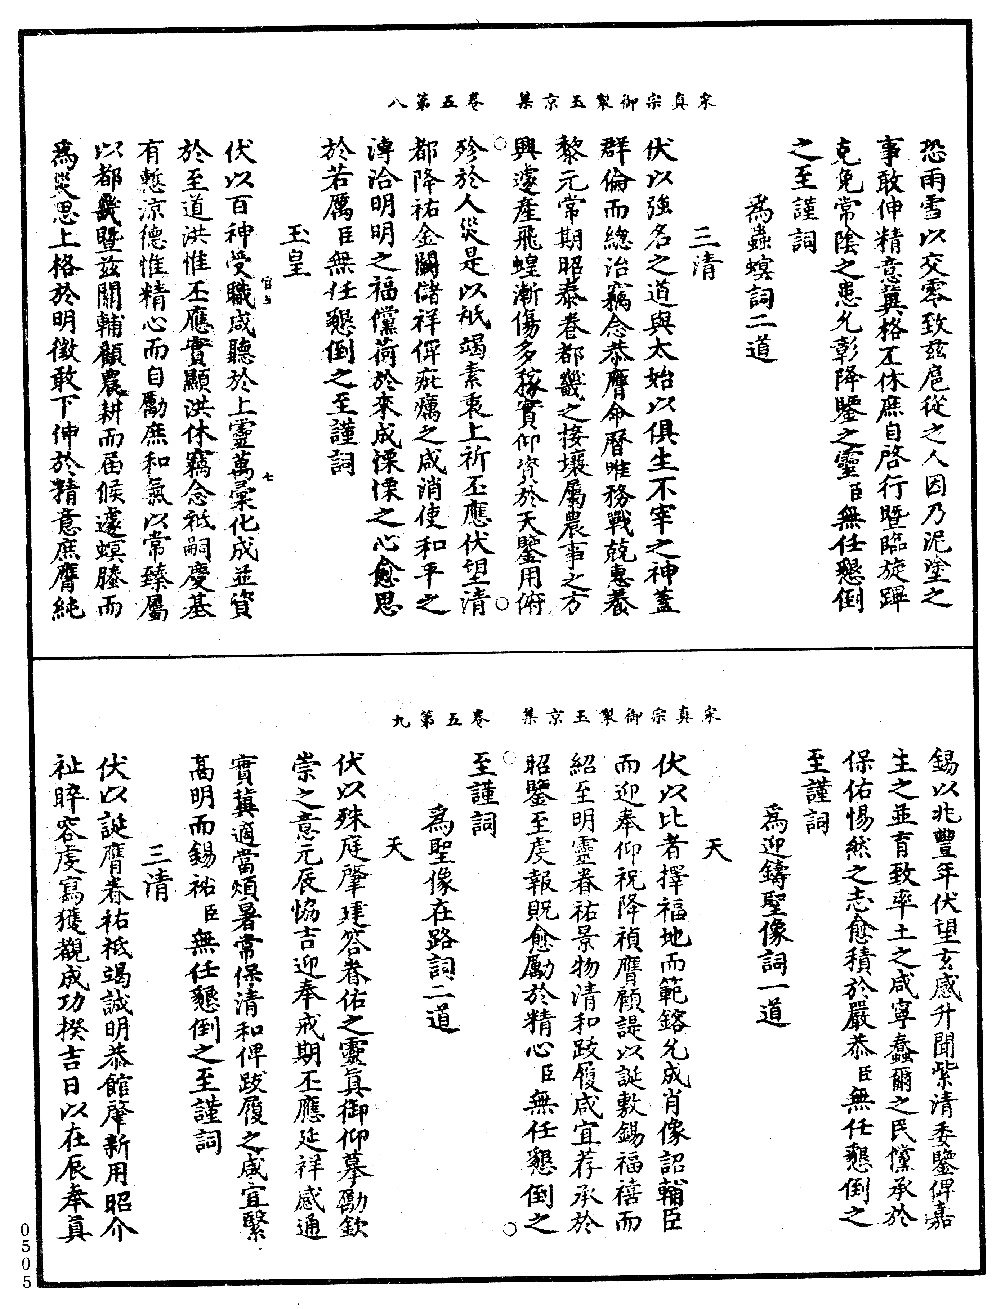 宋真宗御製玉京集　卷五第八
恐雨雪以交零致兹扈從之人因乃泥塗之
事敢伸精意冀格丕休庶自啓行暨臨旋蹕
克免常陰之患允彰降鑒之靈臣無任懇倒
之至謹詞
為蟲螟詞二道
三清
伏以強名之道與太始以俱生不宰之神蓋
群倫而總治竊念恭膺命曆唯務戰兢惠養
黎元常期昭泰眷都畿之接壤屬農事之方
興遽產飛蝗漸傷多稼實仰資於天鑒用俯
殄於人災是以祇竭素衷上祈丕應伏望清
都降祐金闕儲祥俾疵癘之咸消使和平之
溥洽明明之福儻荷於來成慄慄之心愈思
於若厲臣無任懇倒之至謹詞
玉皇
伏以百神受職咸聽於上靈萬彙化成並資
於至道洪惟丕應實顯洪休竊念祗嗣慶基
有慙涼德惟精心而自勵庶和氣以常臻屬
以都畿暨兹關輔顧農耕而屆候遽螟螣而
為災思上格於明徵敢下伸於精意庶膺純
宋真宗御製玉京集　卷五第九
錫以兆豐年伏望玄感升聞紫清委鑒俾嘉
生之並育致率土之咸寧蠢爾之民儻承於
保佑惕然之志愈積於嚴恭臣無任懇倒之
至謹詞
為迎鑄聖像詞一道
天
伏以比者擇福地而範鎔允成肖像詔輔臣
而迎奉仰祝降禎膺顧諟以誕敷錫福禧而
紹至明靈眷祐景物清和跋履咸宜荐承於
昭鑒至虔報貺愈勵於精心臣無任懇倒之
至謹詞
為聖像在路詞二道
天
伏以殊庭肇建答眷佑之靈真御仰摹勵欽
崇之意元辰恊吉迎奉戒期丕應延祥感通
實冀適當煩暑常保清和俾跋履之咸宜繄
高明而錫祐臣無任懇倒之至謹詞
三清
伏以誕膺眷祐祗竭誠明恭館肇新用昭介
祉睟容虔寫獲觀成功揆吉日以在辰奉真
0505